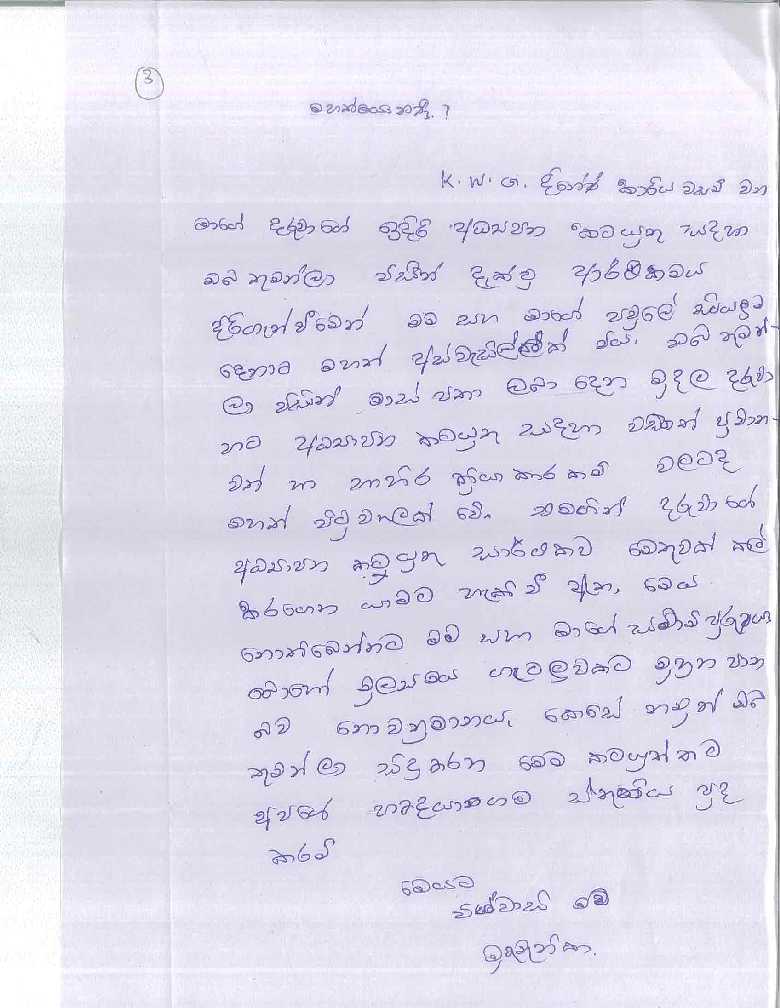 3
මහත්මයෙනි ?
K. W. G. දිනේෂ් කාරියවසම් වන
මාගේ දරුවාගේ ඉදිරි අධ්‍යාපන කටයුතු සදහා
ඔබ තුමන්ලා විසින් දැක්වූ ආධාර
දිරිගැන්වීමෙන් මම සහ මාගේ පවුලේ සියලුම
දෙනාට මහත් අස්වැසිල්ලක් විය. ඔබ තුමන්
ලා විසින් මාස් පතා ලබා දෙන මුදල දරුවා
හට අධ්‍යාපන කටයුතු සදහා වඩාත් ප්‍රමාන
වත් හා බාහිර ක්‍රියාකාරකම් වලටද
මහත් පිටුවහලක් වේ. එමගින් දරුවාගේ
අධ්‍යාපන කටයුතු සාර්ථකව මෙතුවක් කල්
කරගෙන යාමට හැකි වී ඇත, මෙය
නොතිබෙන්නට මම සහ මාගේ ස්වාමි පුරුෂයා
බොහෝ මුල්‍යමය ගැටලුවකට මුහුන පාන
බව නොඅනුමානය. කෙසේ නමුත් ඔබ
තුමන්ලා සිදු කරන මෙම කටයුත්තට
අපගේ හෘදයාංගම ස්තූතිය පුද
කරමි
මෙයට
විශ්වාසී වූ